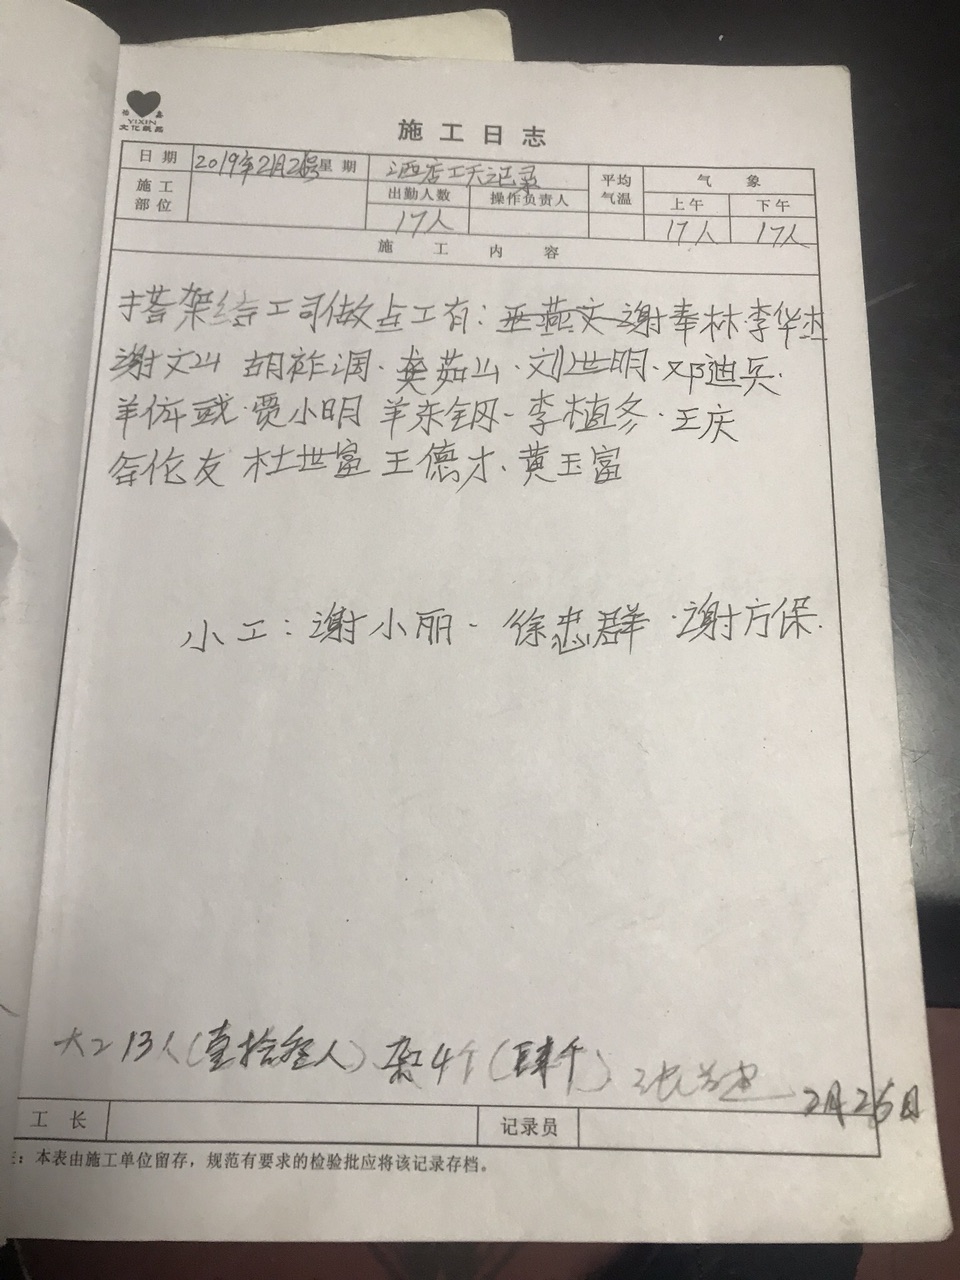 YIXIN
文化纸品
施工日志
日期 2019年2月26号 星期 酒店工天记录 平均气温 气象
施工部位 出勤人数 操作负责人 上午 下午
17人 17人 17人
施工内容
搭架给工司做点工有：王燕文 谢奉林·李华杰
谢文山 胡祚润·龚茹山·刘世明·邓迪兵·
贾小明 羊东钢·李植冬·王庆
伦友 杜世富 王德才·黄玉富
小工：谢小丽· 徐忠群·谢方保·
大工13人(壹拾叁人) 杂4个(肆个)
2月26日
工长 记录员
注：本表由施工单位留存，规范有要求的检验批应将该记录存档。